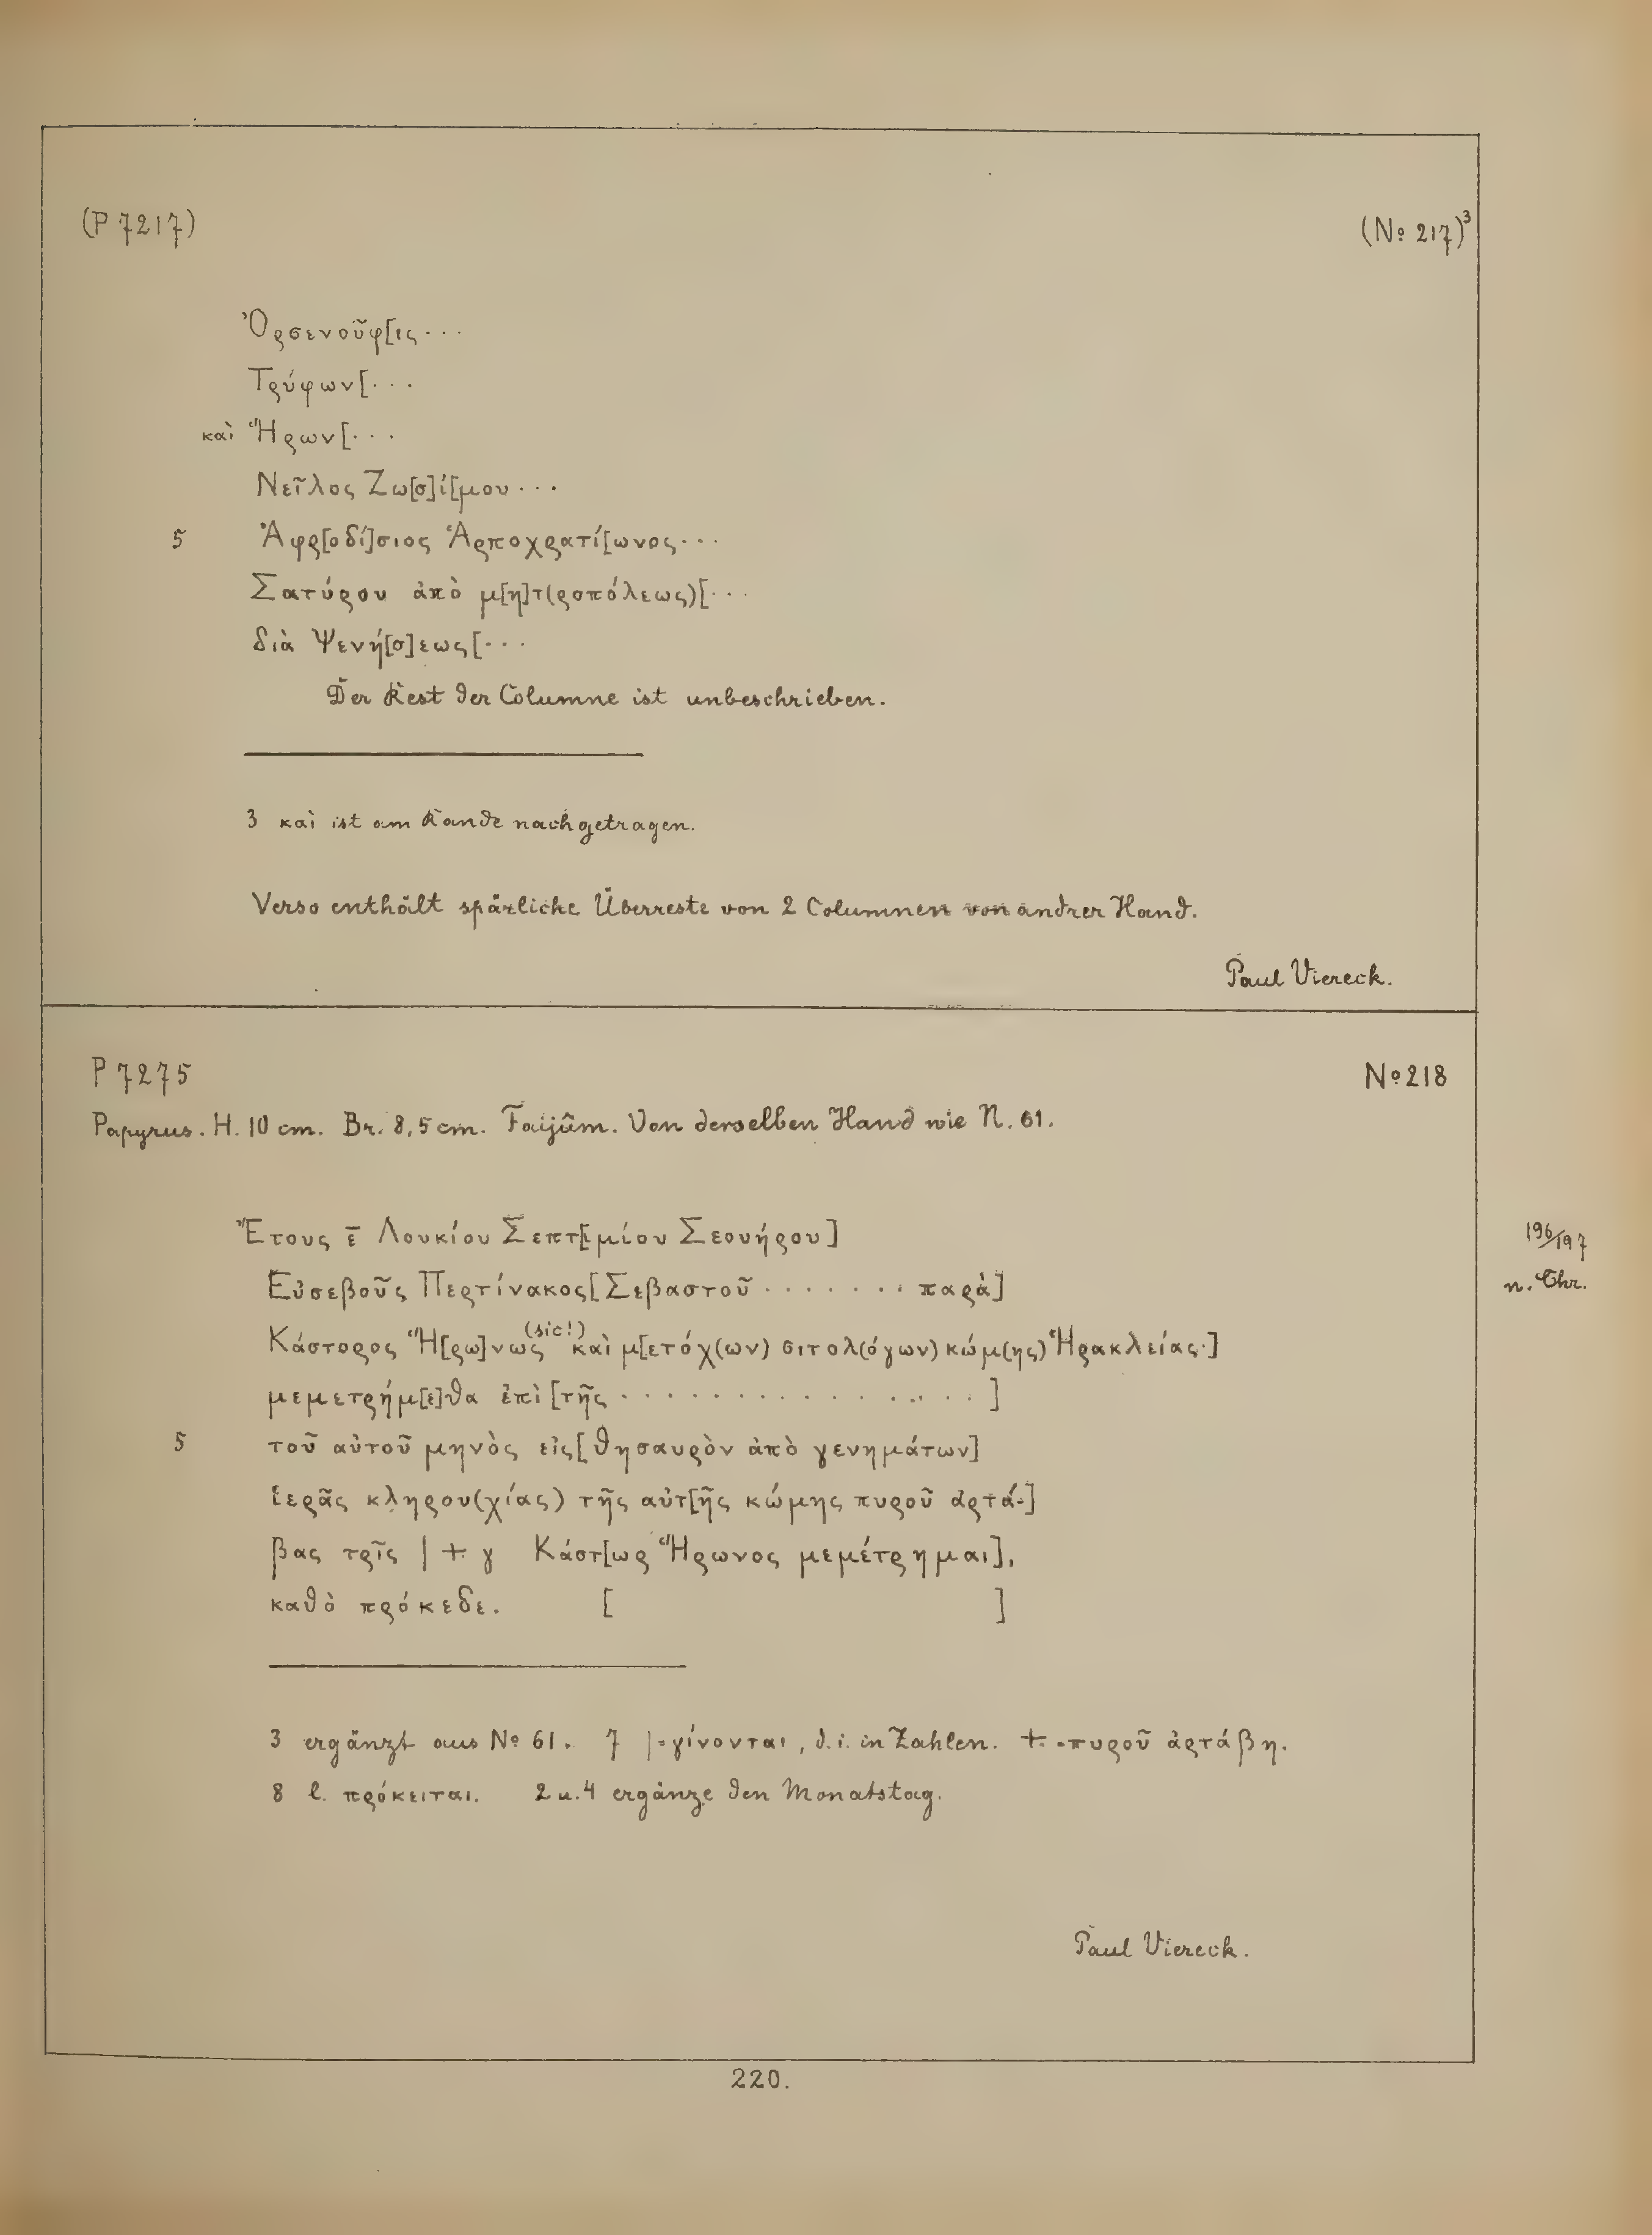 (P 7217) (No 217)³
Ὀρσενοῦφ[ις···
Τρύφων[···
καὶ Ἥρων[···
Νεῖλος Ζω[σ]ί[μου···
5 Ἀφρ[οδί]σιος Ἁρποχρατί[ωνος···
Σατύρου ἀπὸ μ[η]τ(ροπόλεως)[···
διὰ Ψενή[σ]εως[···
Der Rest der Columne ist unbeschrieben.
3 καὶ ist am Rande nachgetragen.
Verso enthält spärliche Überreste von 2 Columnen von andrer Hand.
Paul Viereck.
P 7275 No 218
Papyrus. H. 10 cm. Br. 8,5 cm. Faijûm. Von derselben Hand wie N. 61.
Ἔτους ε̄ Λουκίου Σεπτ[ιμίου Σεουήρου]
196/197
Εὐσεβοῦς Περτίνακος[Σεβαστοῦ········παρὰ]
n. Chr.
(sic!)
Κάστορος Ἥ[ρω]νως καὶ μ[ετόχ(ων) σιτολ(όγων) κώμ(ης) Ἡρακλείας·]
μεμετρήμ[ε]θα ἐπὶ [τῆς ···············]
5 τοῦ αὐτοῦ μηνὸς εἰς[θησαυρὸν ἀπὸ γενημάτων]
ἱερᾶς κληρου(χίας) τῆς αὐτ[ῆς κώμης πυροῦ ἀρτά-]
βας τρῖς | +· γ Κάστ[ωρ Ἥρωνος μεμέτρημαι],
καθὸ πρόκεδε. [ ]
3 ergänzt aus No 61. 7 |=γίνονται, d. i. in Zahlen. +·=πυροῦ ἀρτάβη.
8 l. πρόκειται. 2 u. 4 ergänze den Monatstag.
Paul Viereck.
220.